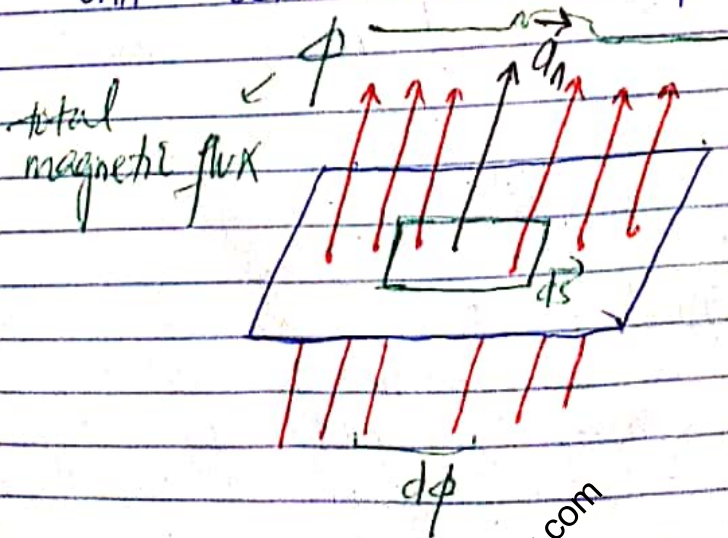 ϕ
a⃗n
total
magnetic flux
ds⃗
dϕ
.com